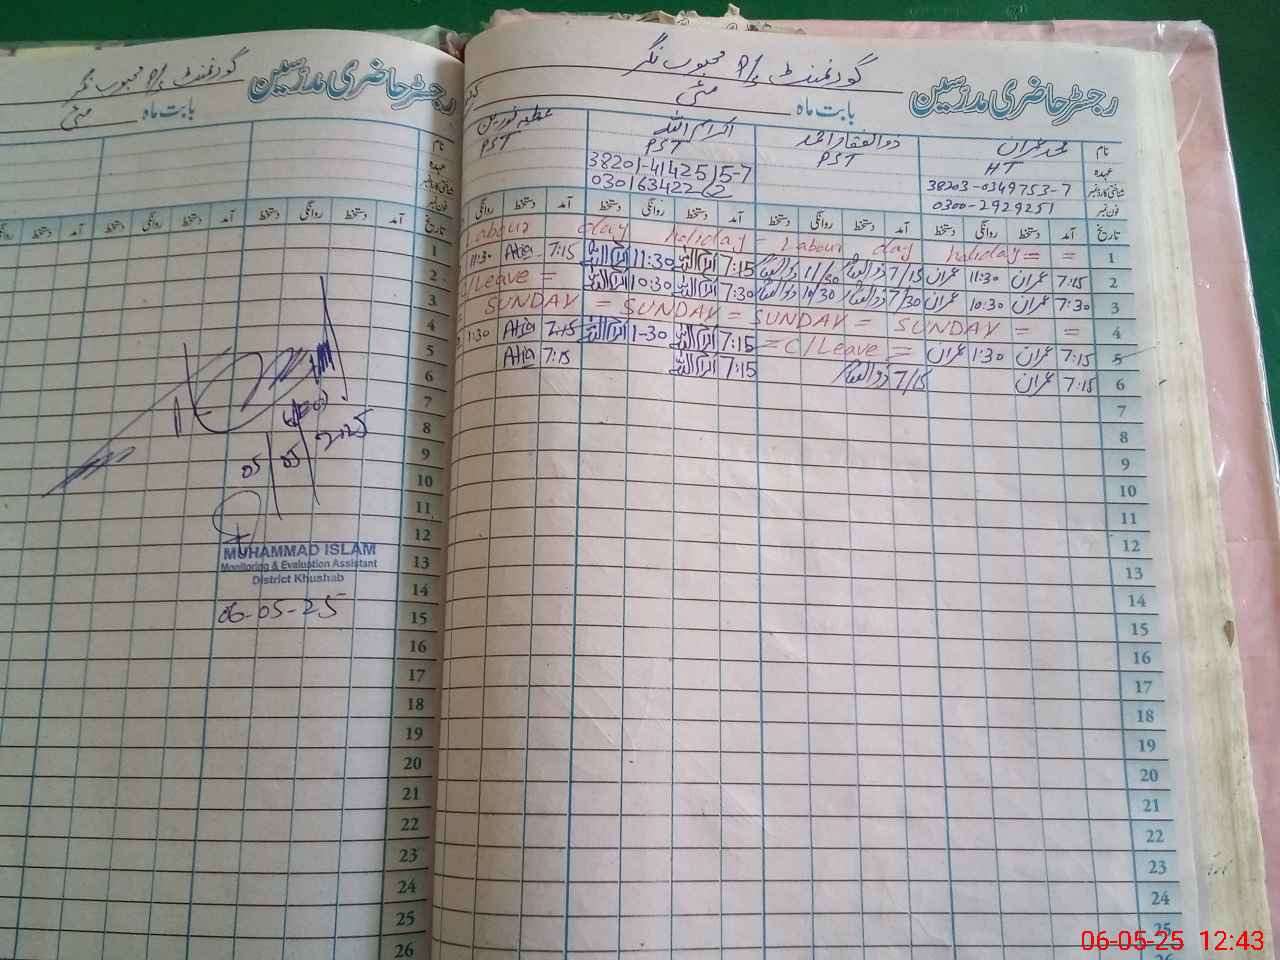 گورنمنٹ P/S محبوب نگر
رجسٹر حاضری مدرسین
بابت ماہ مئی
نام
عہدہ
شناختی کارڈ نمبر
فون نمبر
تاریخ آمد دستخط روانگی دستخط آمد دستخط روانگی
1
2
3
4
5
6
7
8
9
10
11
12
13
14
15
16
17
18
19
20
21
22
23
24
25
26
05/05/2025
MUHAMMAD ISLAM
Monitoring & Evaluation Assistant
District Khushab
06-05-25
گورنمنٹ P/S محبوب نگر
رجسٹر حاضری مدرسین
بابت ماہ مئی
نام محمد عمران ذوالفقار احمد اکرام اللہ عطیہ نورین
عہدہ HT PST PST PST
شناختی کارڈ نمبر 38203-0349753-7 38201-4142515-7
فون نمبر 0300-2929251
تاریخ آمد دستخط روانگی دستخط آمد دستخط روانگی دستخط آمد دستخط روانگی دستخط آمد دستخط روانگی
1 Labour day holiday = Labour day holiday = =
2 7:15 عمران 11:30 عمران 7/15 ذوالفقار 11/30 ذوالفقار 7:15 اکرام اللہ 11:30 اکرام اللہ 7:15 Atia 11:30
3 7:30 عمران 10:30 عمران 7/30 ذوالفقار 10/30 ذوالفقار 7:30 اکرام اللہ 10:30 اکرام اللہ C/Leave =
4 SUNDAY = SUNDAY = SUNDAY = SUNDAY = =
5 7:15 عمران 1:30 عمران = C/Leave = 7:15 اکرام اللہ 1-30 اکرام اللہ 7:15 Atia 1:30
6 7:15 عمران 7/15 ذوالفقار 7:15 اکرام اللہ 7:15 Atia
7
8
9
10
11
12
13
14
15
16
17
18
19
20
21
22
23
24
25
26
06-05-25 12:43